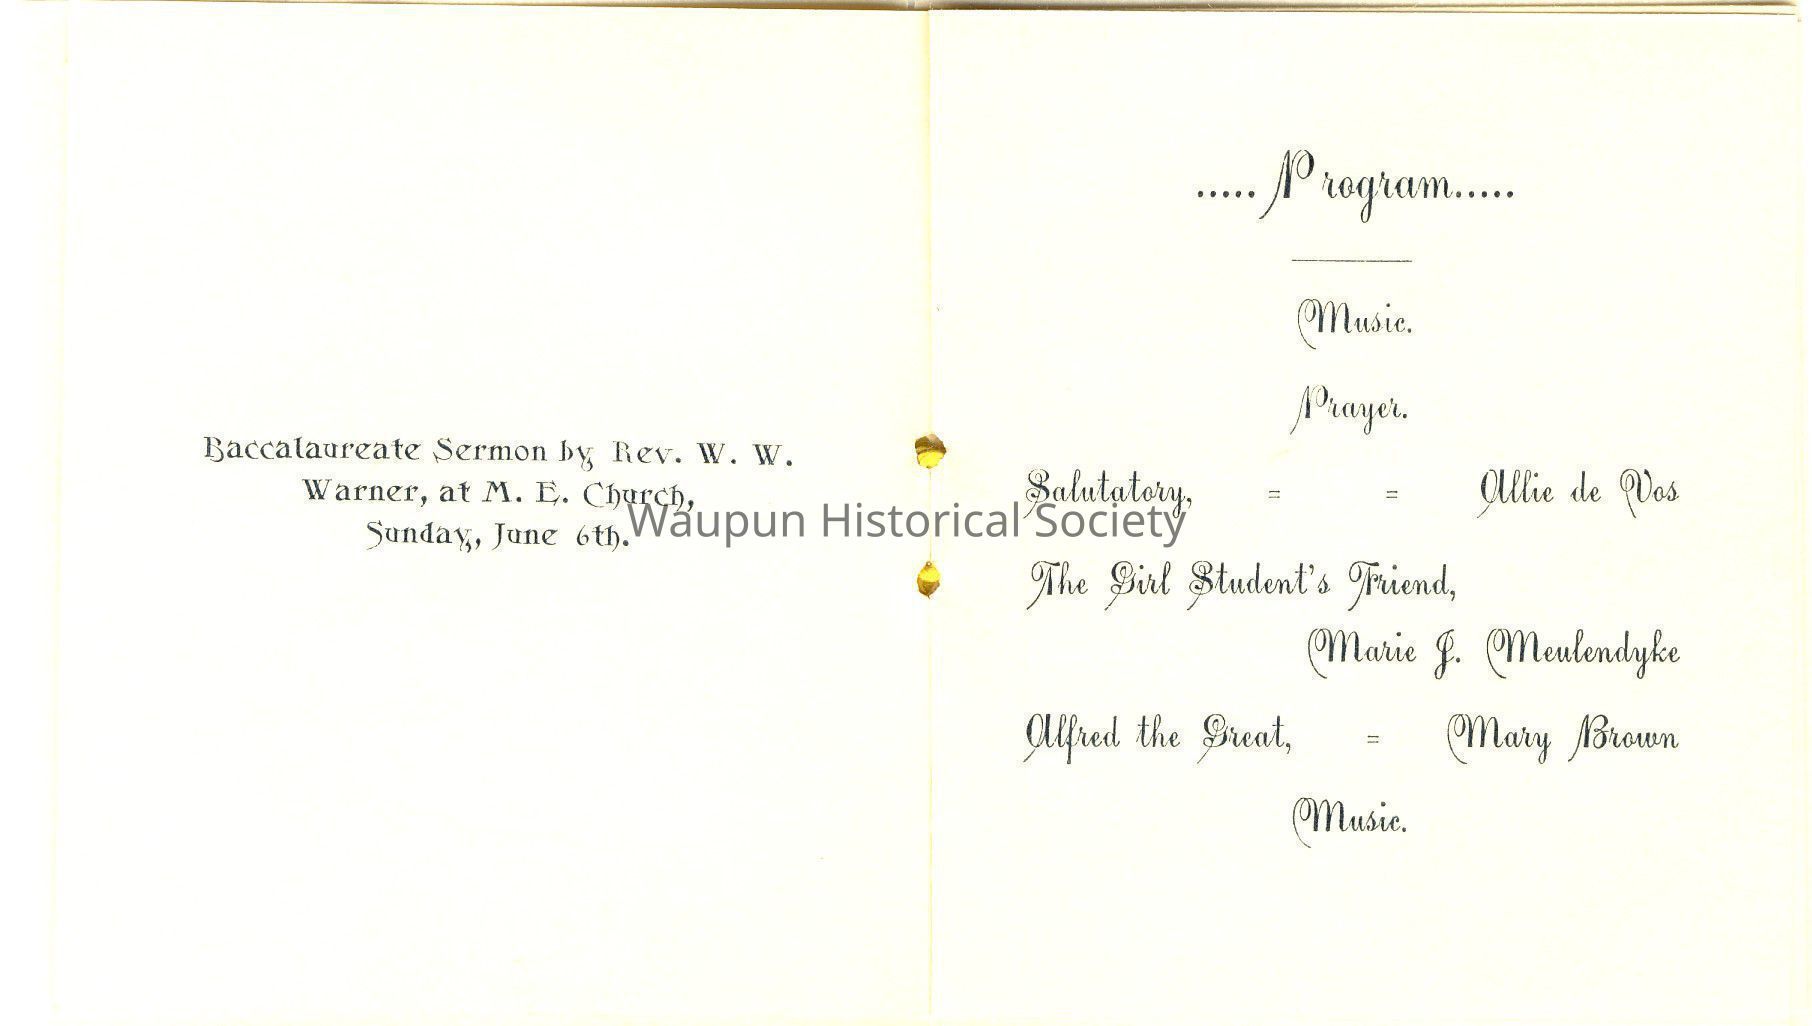 Baccalaureate Sermon by Rev. W. W.
Warner, at M. E. Church,
Sunday, June 6th.
Waupun Historical Society
.....Program.....
Music.
Prayer.
Salutatory, = = Allie de Vos
The Girl Student's Friend,
Marie J. Meulendyke
Alfred the Great, = Mary Brown
Music.